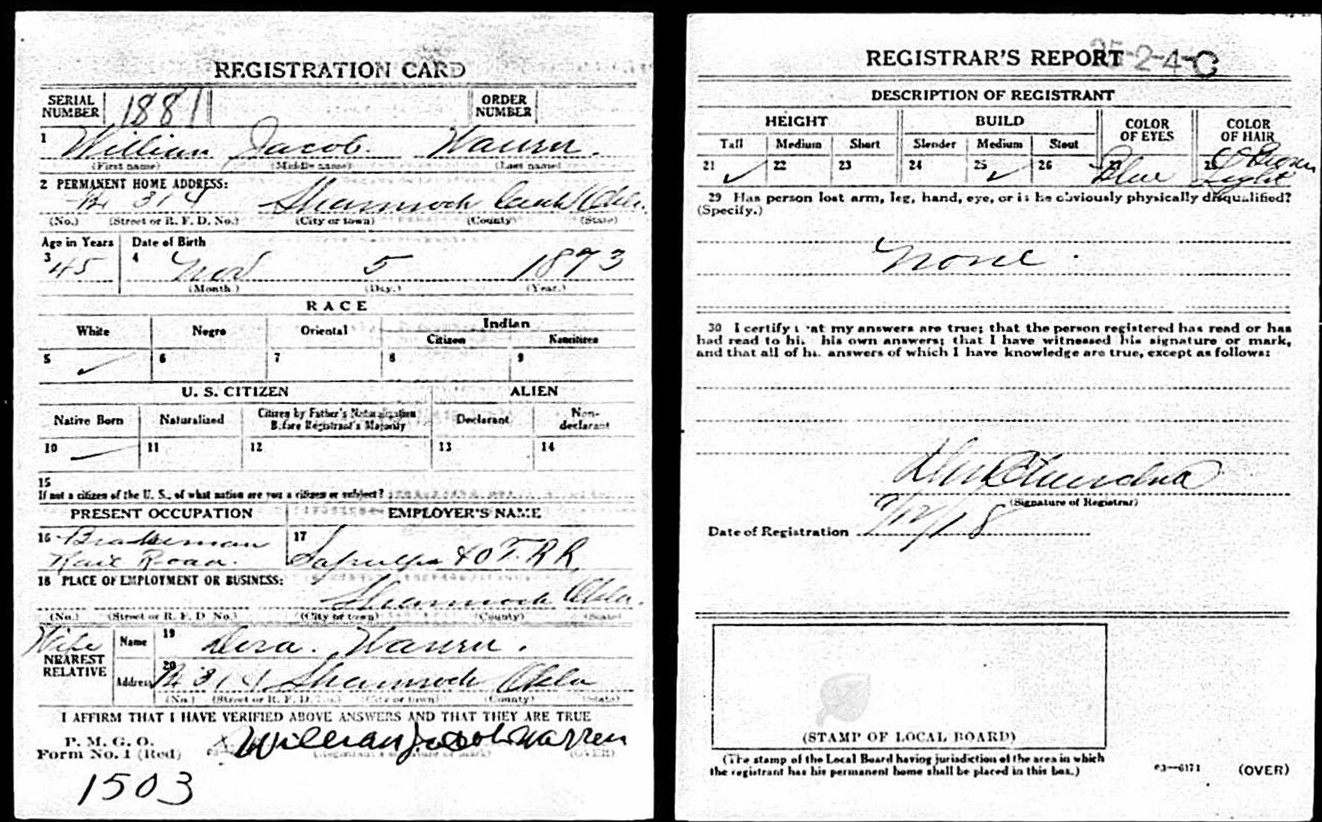 REGISTRATION CARD
SERIAL NUMBER 1881
ORDER NUMBER
1 William Jacob Warren.
(First name) (Middle name) (Last name)
2 PERMANENT HOME ADDRESS:
314 Shamrock Okla.
(No.) (Street or R. F. D. No.) (City or town) (County) (State)
Age in Years Date of Birth
3 45 4 Nov 5 1873
(Month.) (Day.) (Year.)
RACE
White Negro Oriental Indian
Citizen Noncitizen
5 ✓ 6 7 8 9
U. S. CITIZEN ALIEN
Native Born Naturalized Citizen by Father's Naturalization Before Registrant's Majority Declarant Non-declarant
10 ✓ 11 12 13 14
15
If not a citizen of the U. S., of what nation are you a citizen or subject?
PRESENT OCCUPATION EMPLOYER'S NAME
16 Brakeman 17
Rail Road. Sapulpa & O F. R R.
18 PLACE OF EMPLOYMENT OR BUSINESS:
Shamrock Okla.
(No.) (Street or R. F. D. No.) (City or town) (County) (State)
Wife
NEAREST RELATIVE
Name 19 Dora. Warren.
Address 20 314 Shamrock Okla
(No.) (Street or R. F. D. No.) (City or town) (County) (State)
I AFFIRM THAT I HAVE VERIFIED ABOVE ANSWERS AND THAT THEY ARE TRUE
P. M. G. O.
Form No. 1 (Red) x William Jacob Warren
(Registrant's signature or mark) (OVER)
1503
REGISTRAR'S REPORT
35-2-4-C
DESCRIPTION OF REGISTRANT
HEIGHT BUILD COLOR OF EYES COLOR OF HAIR
Tall Medium Short Slender Medium Stout
21 ✓ 22 23 24 25 ✓ 26 27 Blue 28 Brown Light
29 Has person lost arm, leg, hand, eye, or is he obviously physically disqualified?
(Specify.)
none.
30 I certify that my answers are true; that the person registered has read or has
had read to him his own answers; that I have witnessed his signature or mark,
and that all of his answers of which I have knowledge are true, except as follows:
(Signature of Registrar)
Date of Registration 9/12/18
(STAMP OF LOCAL BOARD)
(The stamp of the Local Board having jurisdiction of the area in which
the registrant has his permanent home shall be placed in this box.)
03—6171 (OVER)